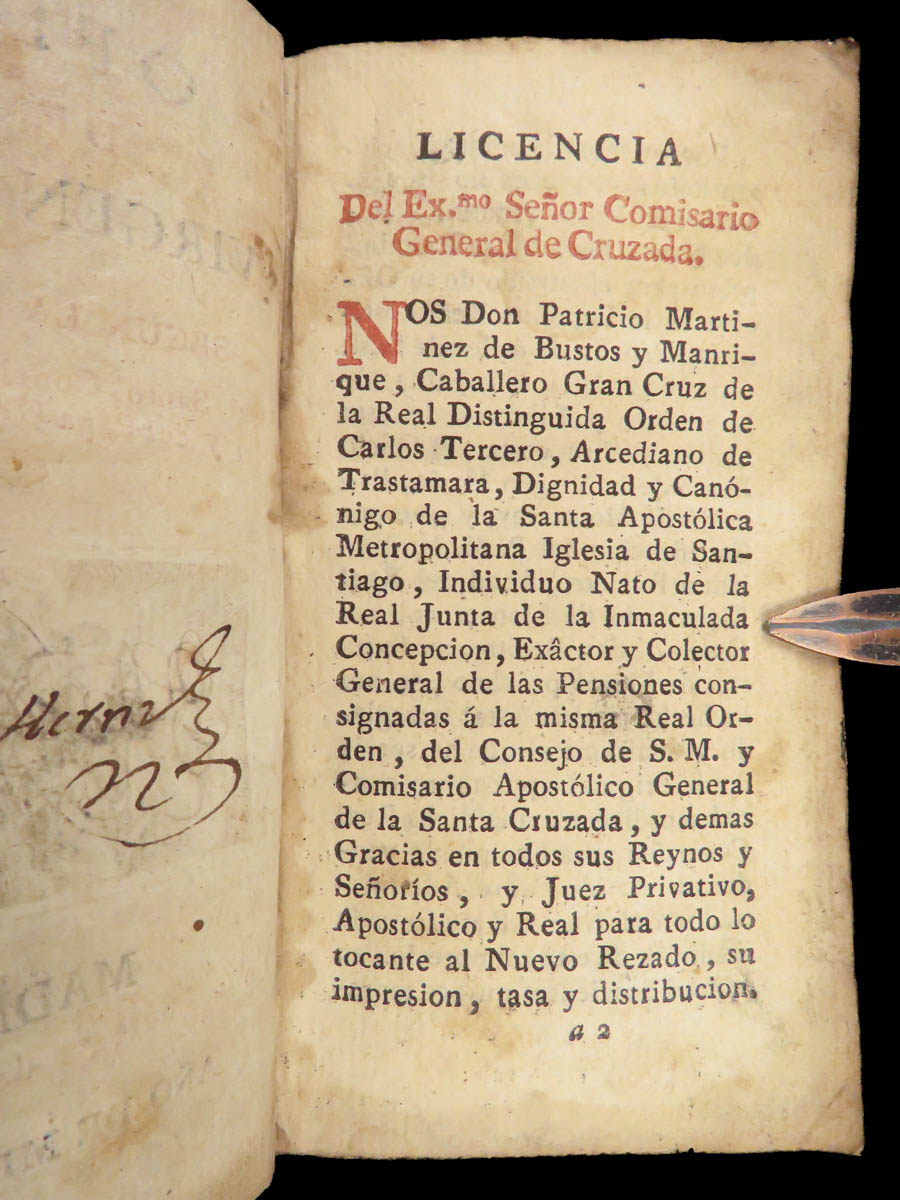 Hern
LICENCIA
Del Ex.mo Señor Comisario
General de Cruzada.
NOS Don Patricio Marti-
nez de Bustos y Manri-
que, Caballero Gran Cruz de
la Real Distinguida Orden de
Carlos Tercero, Arcediano de
Trastamara, Dignidad y Canó-
nigo de la Santa Apostólica
Metropolitana Iglesia de San-
tiago, Individuo Nato de la
Real Junta de la Inmaculada
Concepcion, Exâctor y Colector
General de las Pensiones con-
signadas á la misma Real Or-
den, del Consejo de S. M. y
Comisario Apostólico General
de la Santa Cruzada, y demas
Gracias en todos sus Reynos y
Señoríos, y Juez Privativo,
Apostólico y Real para todo lo
tocante al Nuevo Rezado, su
impresion, tasa y distribucion.
a 2